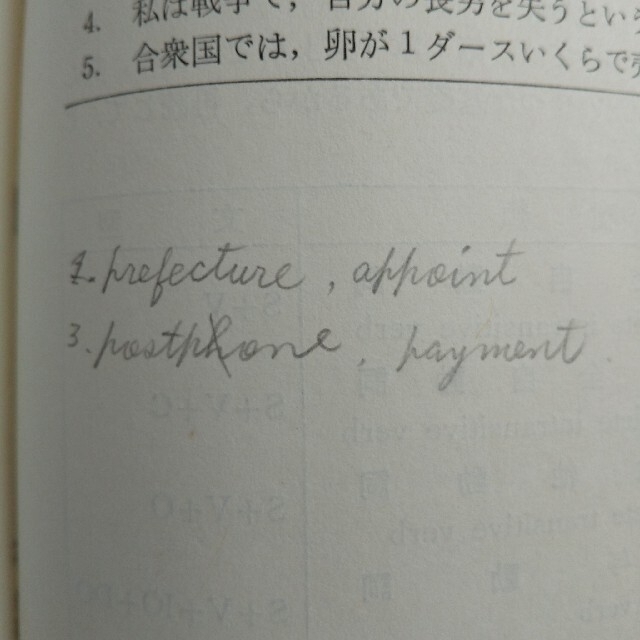 4. 私は戦争で，自分の長男を失うという
5. 合衆国では，卵が１ダースいくらで
1. prefecture , appoint
3. postphone , payment .